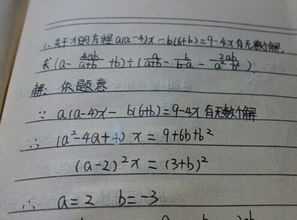 1.关于x的方程a(a-4)x-b(6+b)=9-4x有无数个解,
求(a-\frac{4ab}{a+b}+b)÷(\frac{a}{a+b}-\frac{b}{b-a}-\frac{2ab}{a²-b²})
解:依题意
∵a(a-4)x-b(6+b)=9-4x有无数个解
(a²-4a+4)x=9+6b+b²
(a-2)²x=(3+b)²
∴a=2 b=-3